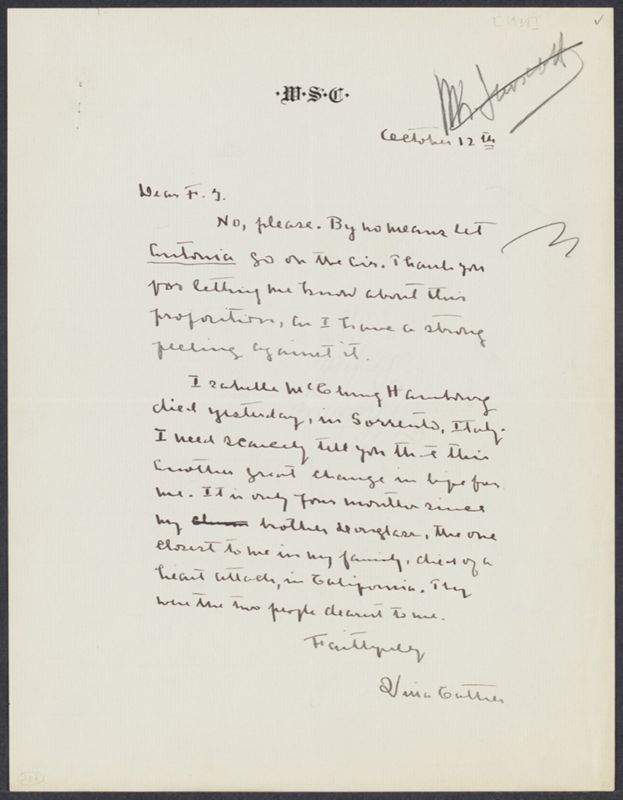 [1938]
·W·S·C·
Mr Linscott
October 12th
Dear F. G.
No, please. By no means let
Antonia go on the air. Thank you
for letting me know about this
proposition, as I have a strong
feeling against it.
Isabelle McClung Hambourg
died yesterday, in Sorrento, Italy.
I need scarcely tell you that this
another great change in life for
me. It is only four months since
my brother Douglass, the one
closest to me in my family, died of a
heart attack, in California. They
were the two people dearest to me.
Faithfully
Willa Cather